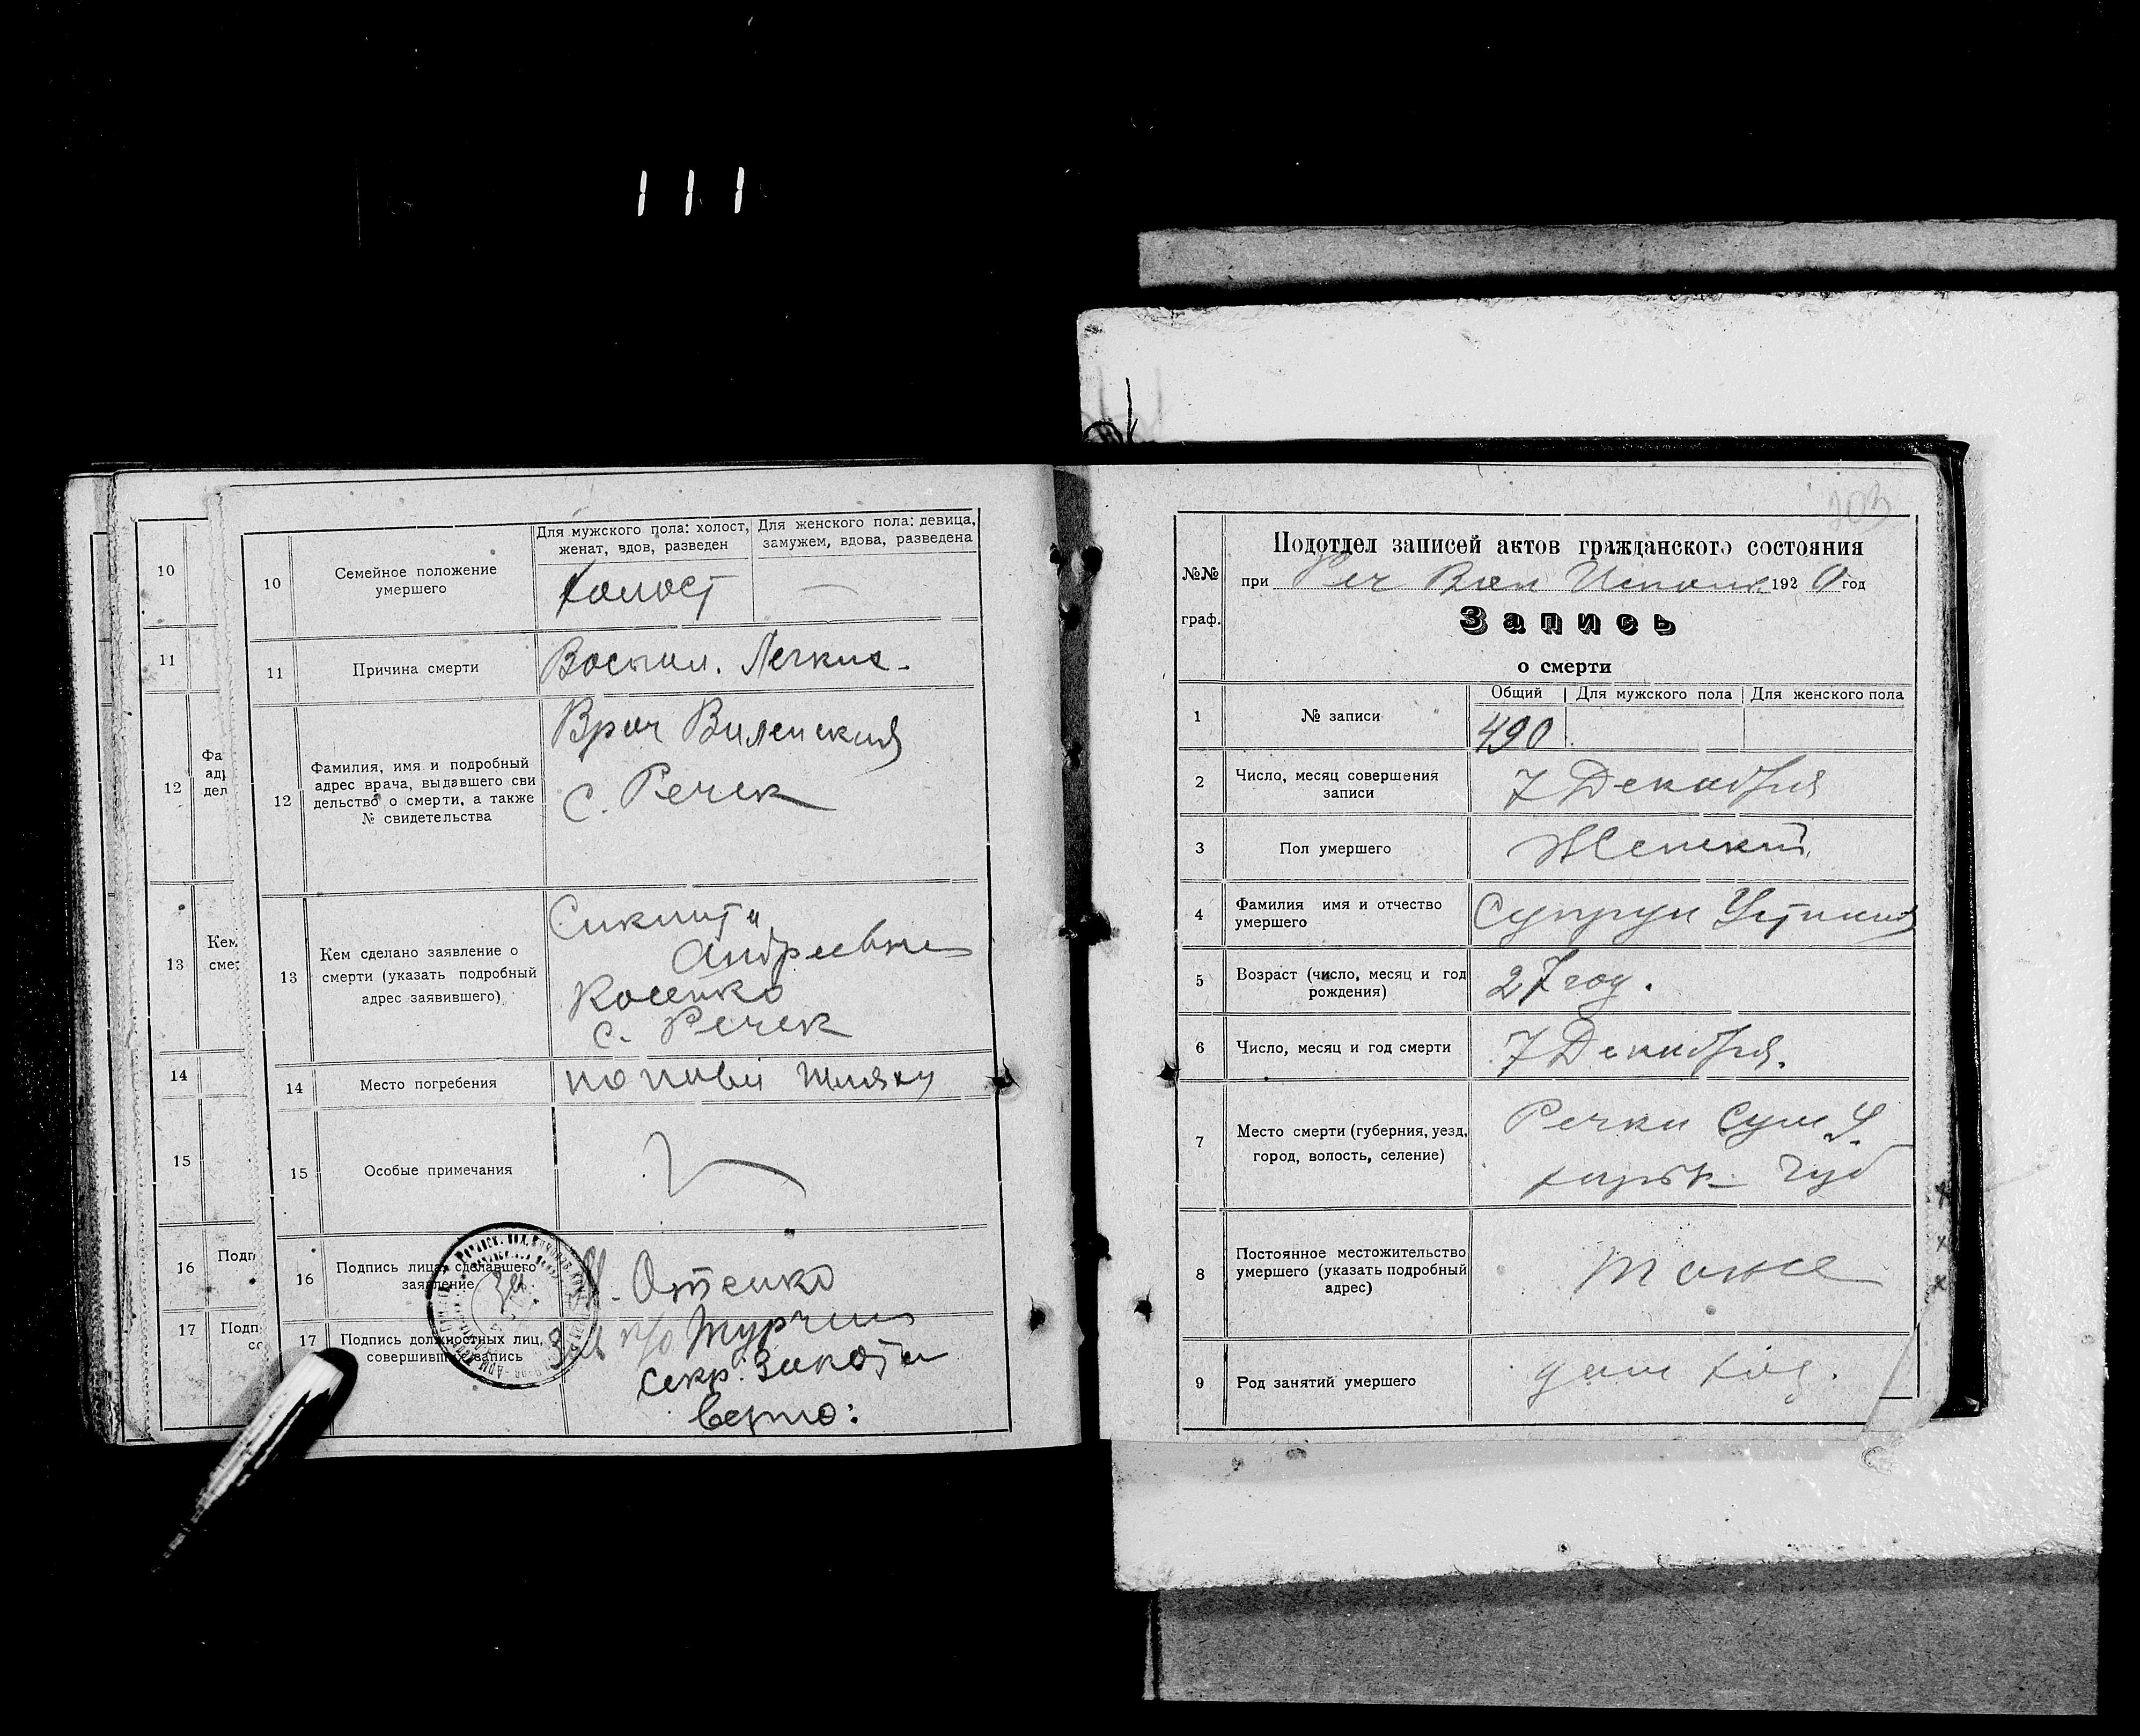 111
10
11
12
Фа
адр
дел
13
Кем
смер
14
15
16
Подп
17
Подп
со
10
Семейное положение
умершего
Для мужского пола: холост,
женат, вдов, разведен
Для женского пола: девица,
замужем, вдова, разведена
Холост
—
11
Причина смерти
Воспал. Легких.
12
Фамилия, имя и подробный
адрес врача, выдавшего сви
дельство о смерти, а также
№ свидетельства
Врач Виленский
с. Речек
13
Кем сделано заявление о
смерти (указать подробный
адрес заявившего)
Андреевна
Косенко
с. Речек
14
Место погребения
15
Особые примечания
16
Подпись лица, сделавшего
заявление
17
Подпись должностных лиц,
совершивших запись
Секр.
Верно:
203
№№
граф.
Подотдел записей актов гражданского состояния
при Реч Вол Исполк. 1920 год
Запись
о смерти
1
№ записи
Общий
Для мужского пола
Для женского пола
490
2
Число, месяц совершения
записи
7 Декабря
3
Пол умершего
Женский
4
Фамилия имя и отчество
умершего
Супрун Устиния
5
Возраст (число, месяц и год
рождения)
27 год.
6
Число, месяц и год смерти
7 Декабря.
7
Место смерти (губерния, уезд,
город, волость, селение)
Речки Сум. У.
Харьк. Губ
8
Постоянное местожительство
умершего (указать подробный
адрес)
Тоже
9
Род занятий умершего
дом хоз.